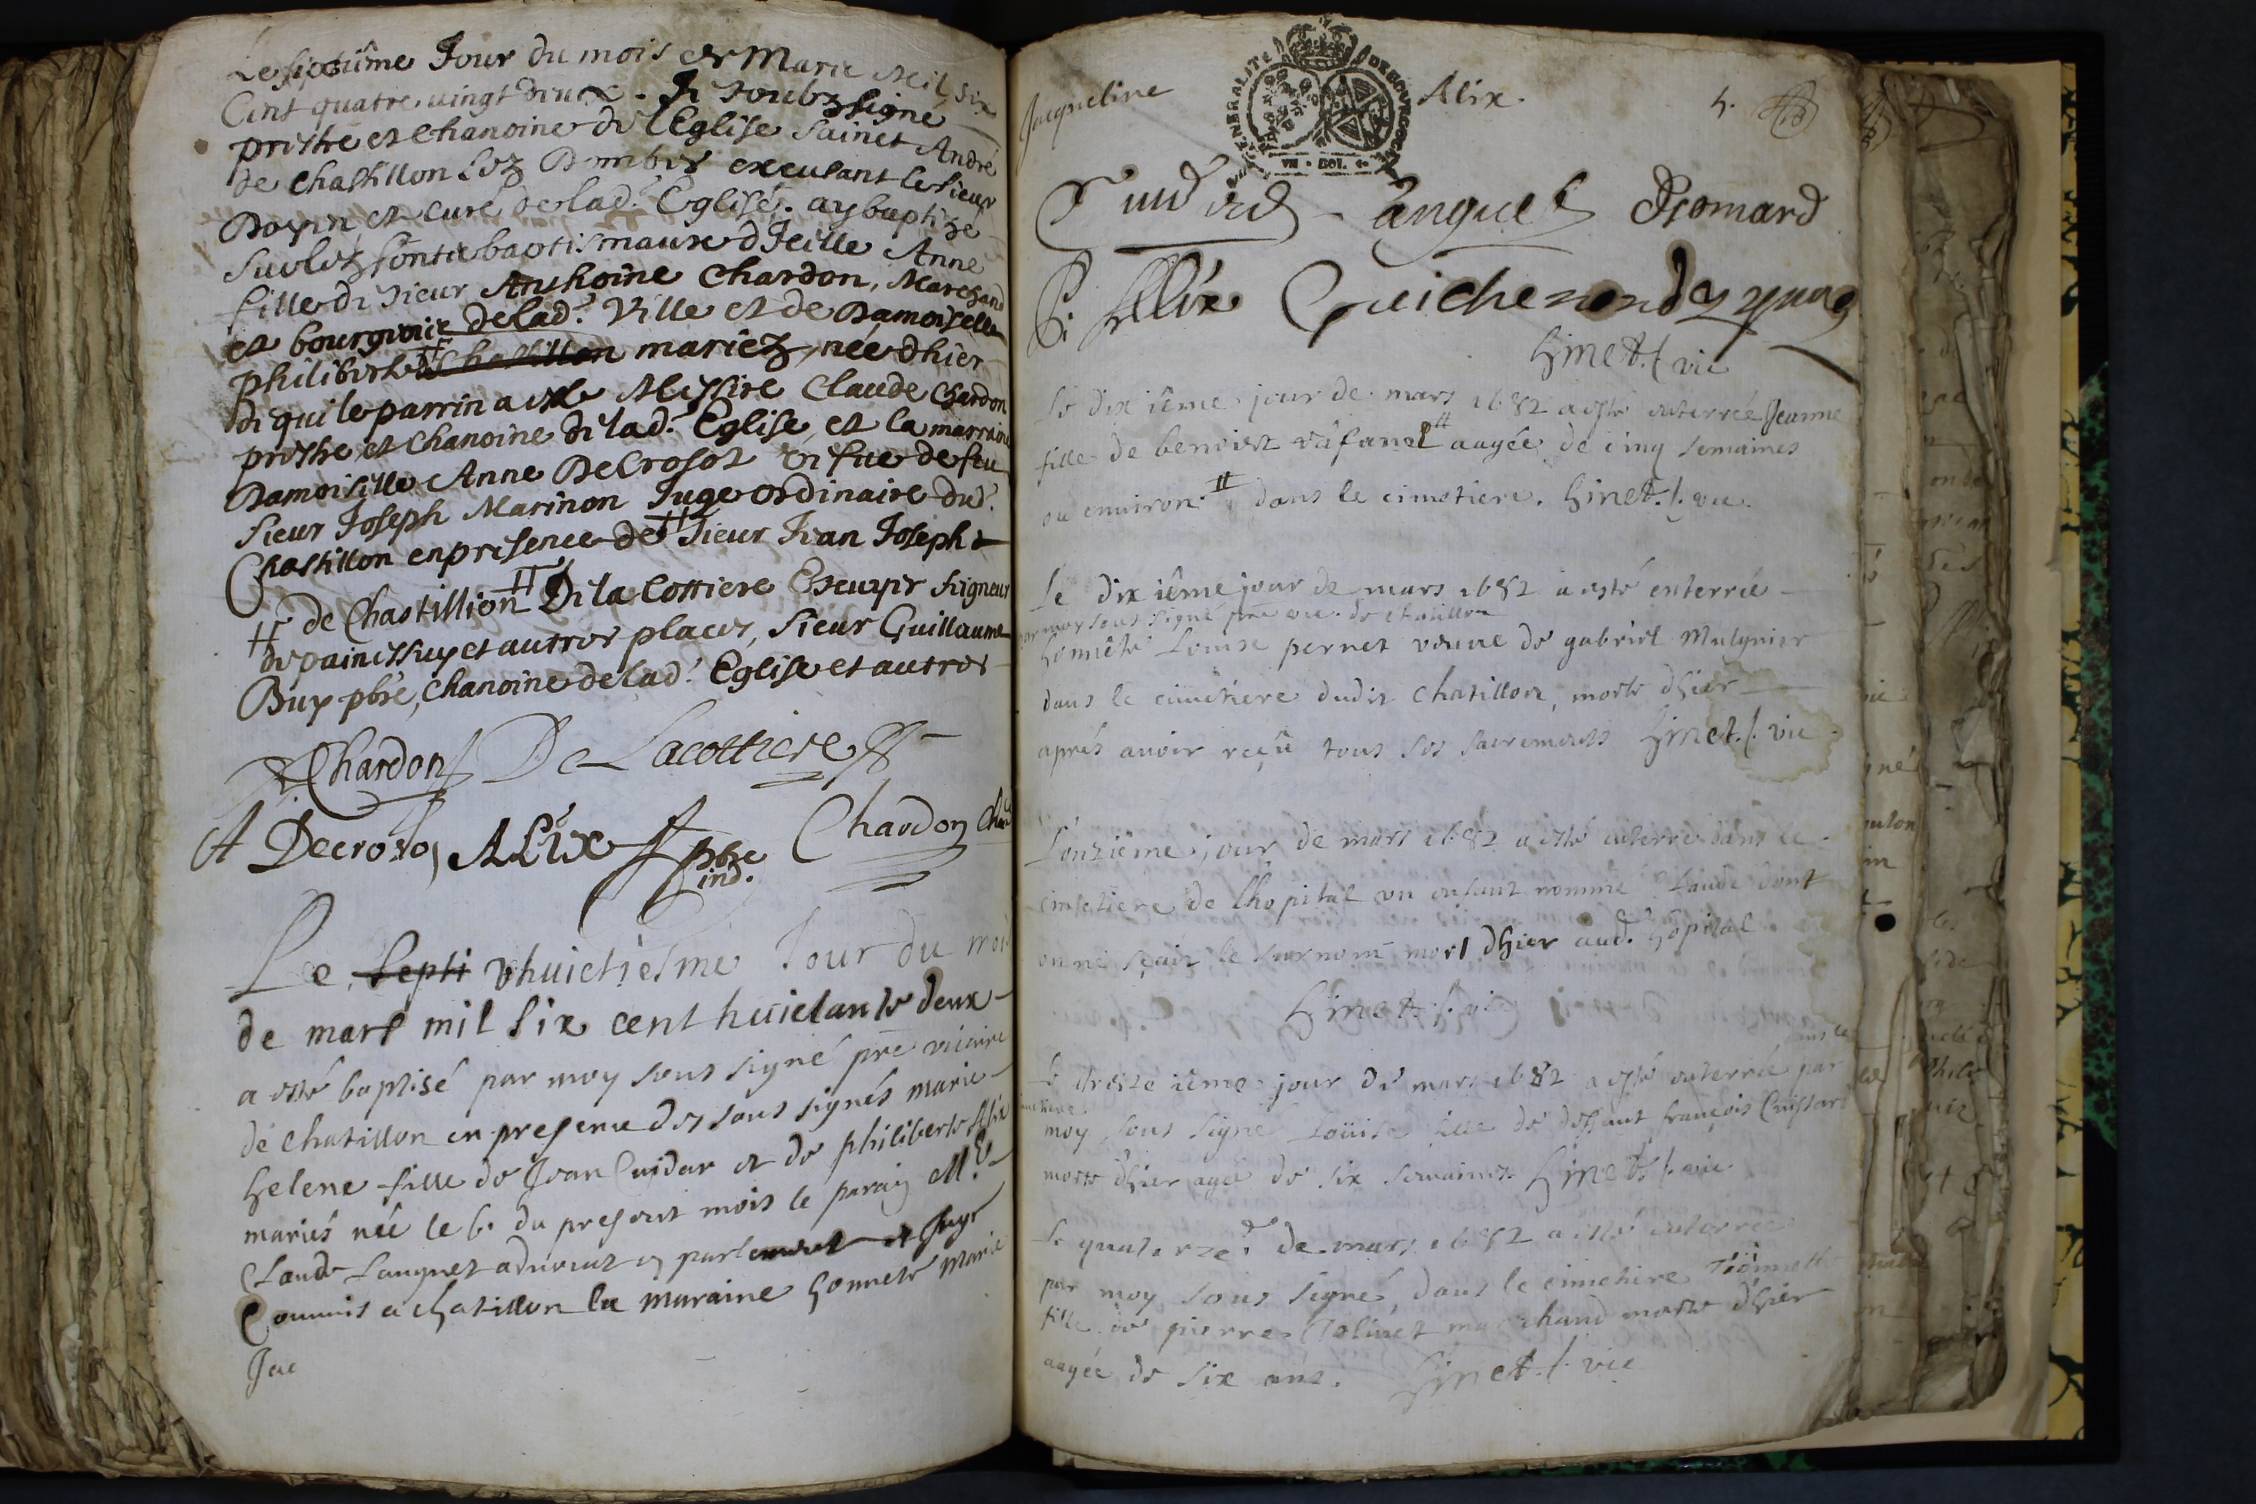 Le septiême Jour du mois de Mars Mil Six
Cent quatre uingt deux. Je Soubz signé
prestre et Chanoine de l'Eglise Sainct André
de Chastillon Lez Dombes excusant le Sieur
Doyen et Curé de lad.e Eglise. ay baptizé
sur les fonts baptismaux d'Icelle Anne
fille de Sieur Anthoine Chardon, Marchand
et bourgeois de lad.e Ville et de Damoiselle
philiberte # mariez, née d'hier
de qui le parrin a esté Messire Claude Chardon
prestre et Chanoine de lad.e Eglise, et la marraine
Damoiselle Anne DeCrosot vefue de feu
Sieur Joseph Marinon Juge ordinaire dud.
Chastillon en presence de # Sieur Jean Joseph
# de Chastillion # De la Cottiere Escuyer Seigneur
de et autres places, Sieur Guillaume
Buy pbre, Chanoine de lad.e Eglise et autres
Chardon De Lacottiere
A Decrosos ALIX pbre Chardon
ind.
Le septi vhuictiesme Jour du moi
de mars mil six cent huictante deux
a esté baptisé par moy sous signé pre vicaire
de chatillon en presence des sous signés marie
helene fille de Jean Cuidar et de philiberte Alix
mariés née le 6. du present mois le parain M.e
Claude Languet aduocat en parlement et Juge
Commis a chatillon la maraine honnete Marie
Jac
Jacqueline Alix. 4.
GENERALITÉ DE BOURGOGNE
VN SOL
Languet Dromard
Alix Guichenon
hinet vic
Le dixiême jour de mars 1682 a esté enterrée Jeanne
fille de benoist aagée de cinq semaines
ou enuiron # dans le cimetiere. hinet vic.
Le dixiême jour de mars 1682 a esté enterrée
par moy sous signé pre vic. de chatillon
honnête Louise pernet veuue de gabriel Mulynier
dans le cimetiere dudit chatillon, morte d'hier
aprés auoir reçû tous ses sacrements hinet vic.
L'onziême jour de mars 1682 a esté enterré dans le
cimetiere de lhopital vn enfant nommé Claude dont
on ne sçait le surnom mort dhier aud. hôpital
hinet vic
dans le
Le treiziême jour de mars 1682 a esté enterrée par
cimetiere
moy sous signé Loüise fille de deffaut françois
morte d'hier agée de six semaines hinet vic
Le quatorze.e de mars 1682 a esté enterrée
par moy sous signé, dans le cimetiere
fille de pierre marchand morte d'hier
aagée de six ans. hinet vic